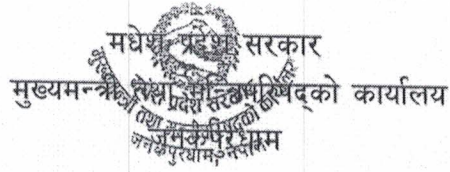 मधेश प्रदेश सरकार
मुख्यमन्त्री तथा मन्त्रिपरिषद्को कार्यालय
जनकपुरधाम
जनकपुरधाम, नेपाल